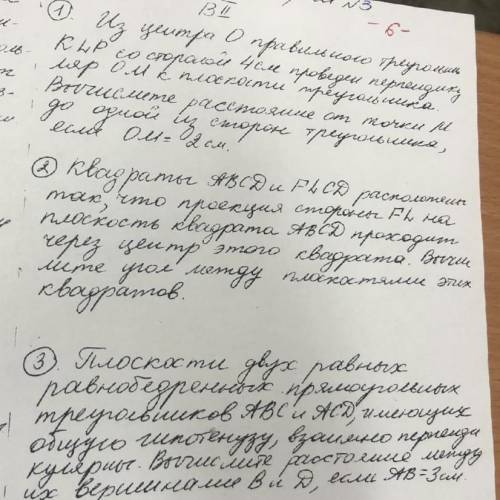 В II
№3
-6-
① Из центра О правильного треугольн
KLP со стороной 4см проведен перпендику
ляр ОМ к плоскости треугольника.
Вычислите расстояние от точки М
до одной из сторон треугольника,
если ОМ=2см.
② Квадраты ABCD и FLCD расположены
так, что проекция стороны FL на
плоскость квадрата ABCD проходит
через центр этого квадрата. Вычис
лите угол между плоскостями этих
квадратов.
③. Плоскости двух равных
равнобедренных прямоугольных
треугольников ABC и ACD, имеющих
общую гипотенузу, взаимно перпенди
кулярны. Вычислите расстояние между
их вершинами В и D, если АВ=3см.